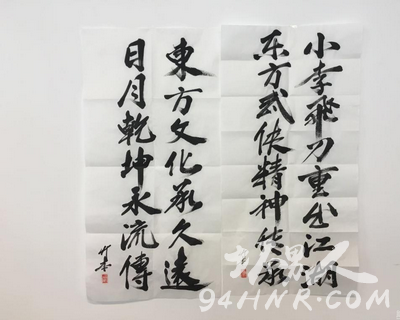 小李飛刀重出江湖
东方武侠精神传承
東方文化承久遠
日月乾坤永流傳
竹本
94HNR.COM